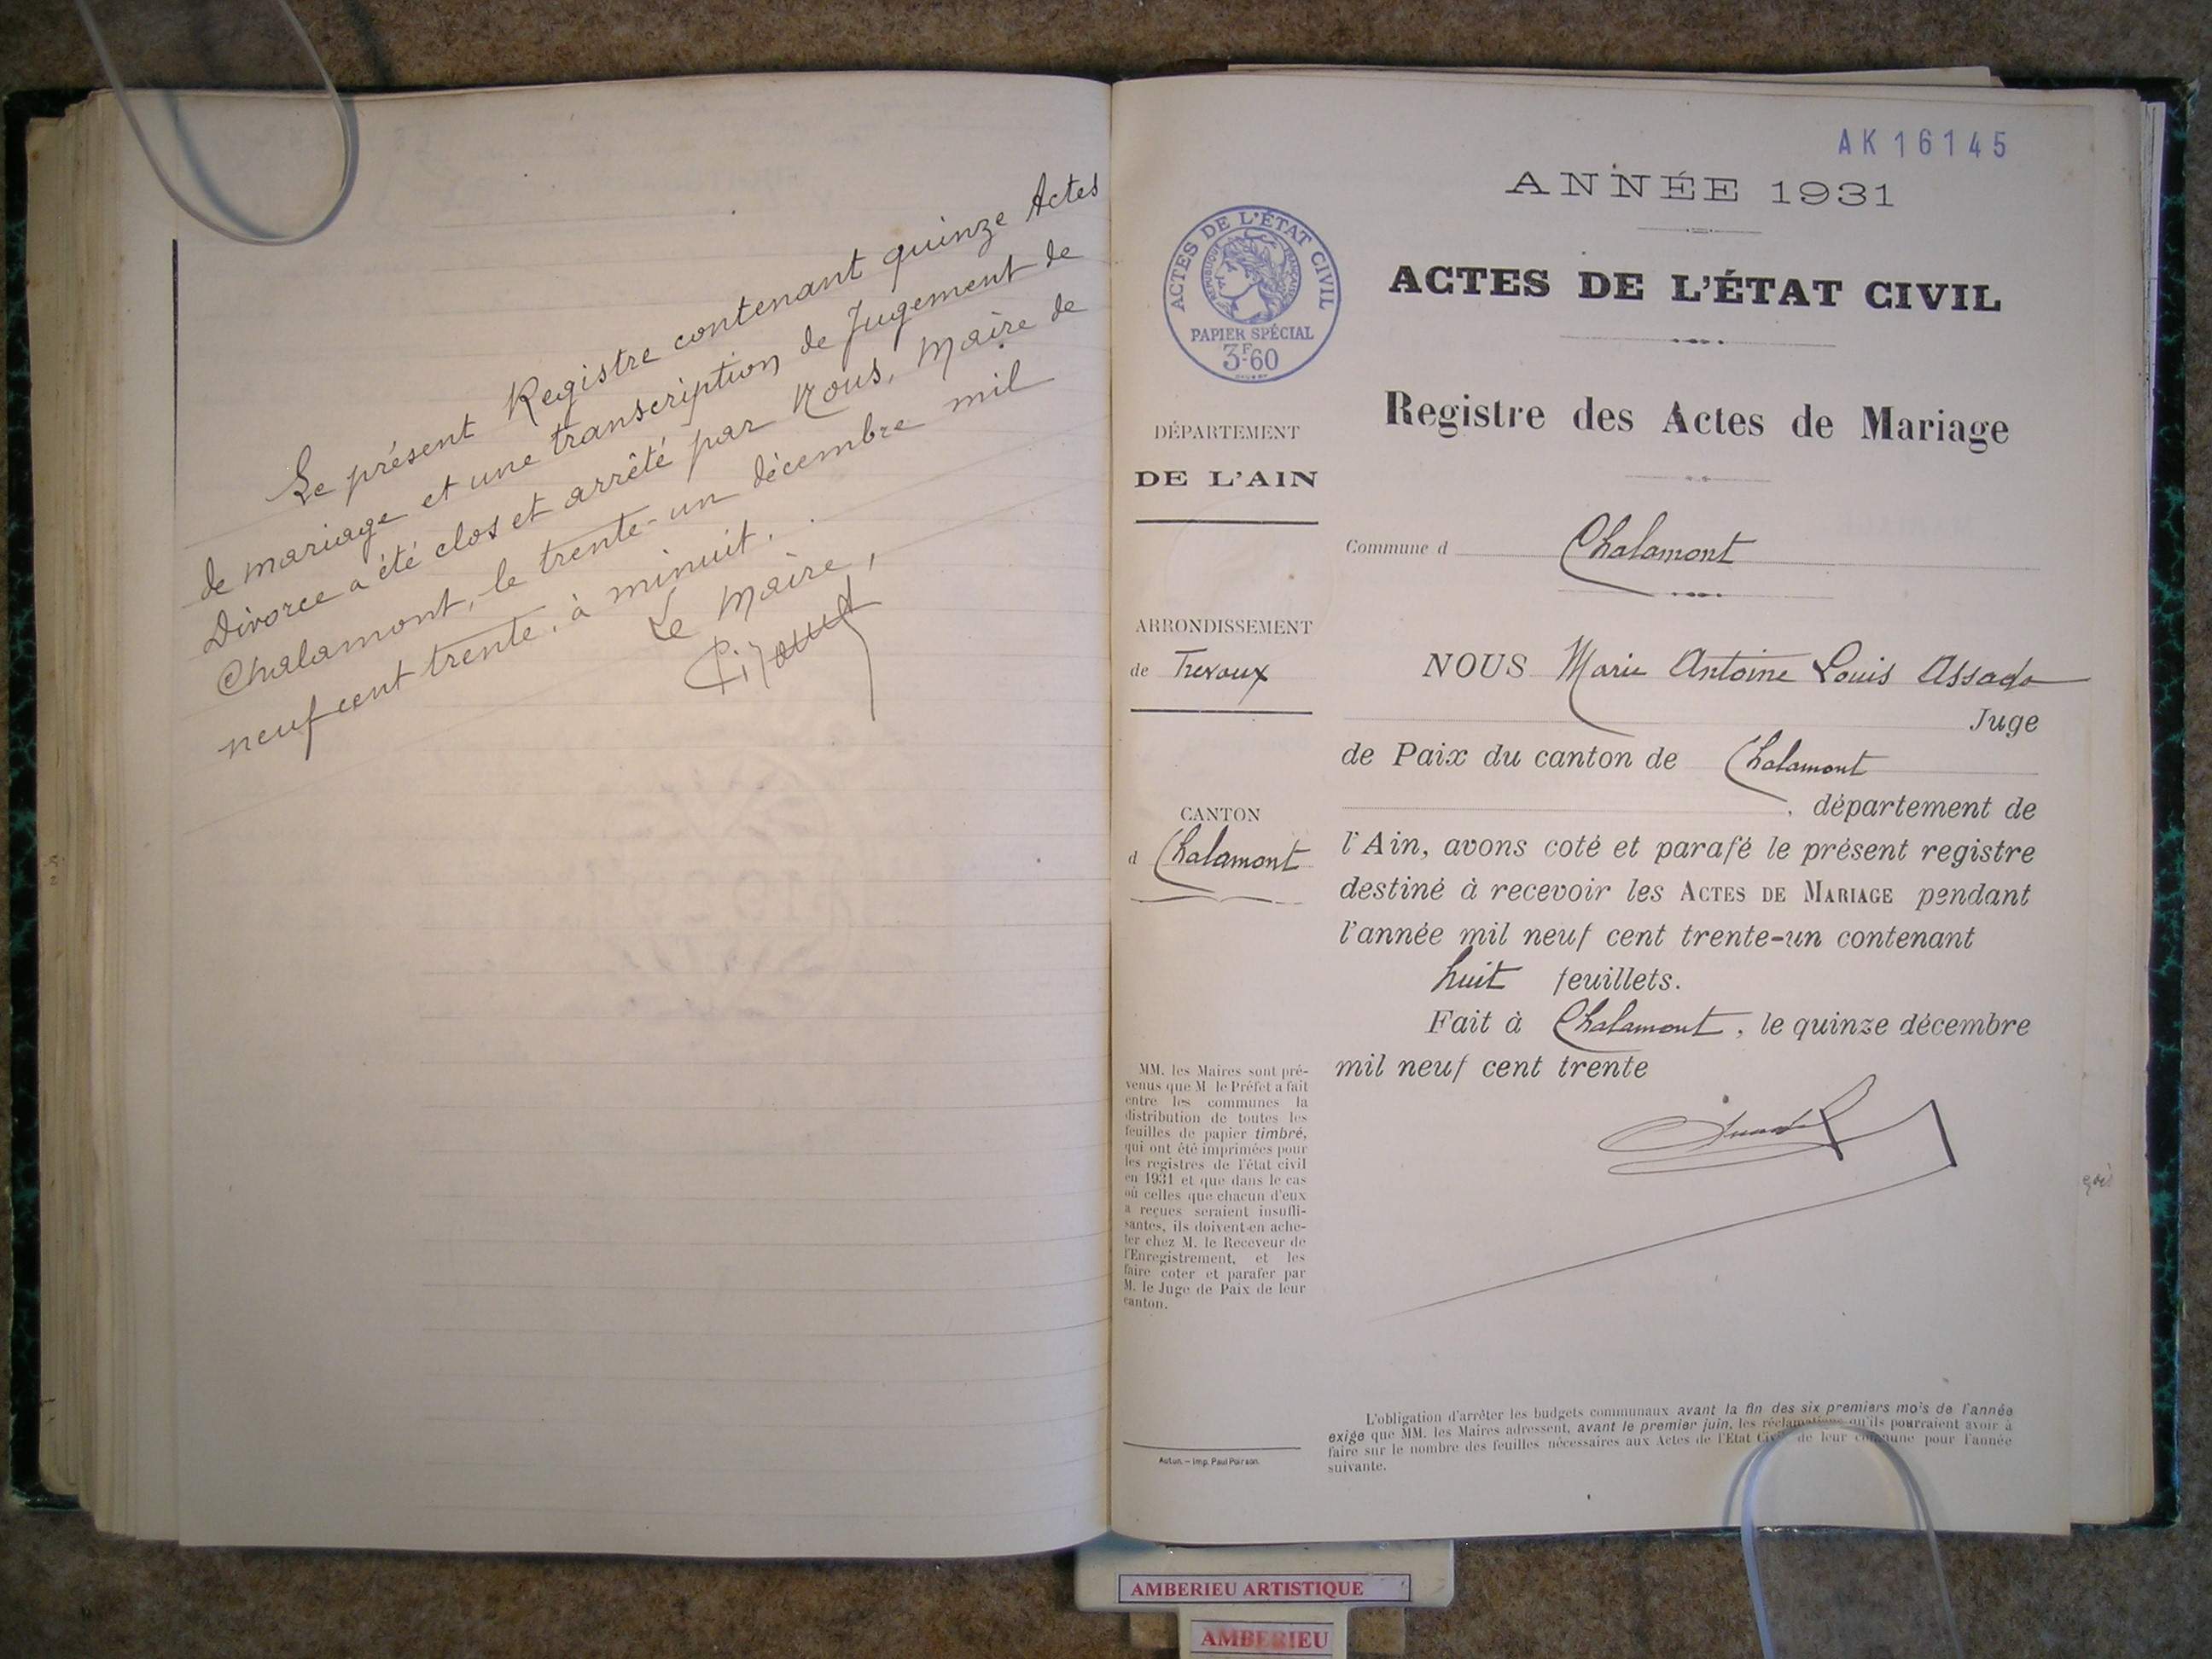 Le présent Registre contenant quinze Actes
de mariage et une transcription de Jugement de
Divorce a été clos et arrêté par Nous, Maire de
Chalamont, le trente-un décembre mil
neuf cent trente, à minuit.
Le Maire,
AK 16145
ANNÉE 1931
ACTES DE L'ÉTAT CIVIL
RÉPUBLIQUE FRANÇAISE
PAPIER SPÉCIAL
3F60
ACTES DE L'ÉTAT CIVIL
Registre des Actes de Mariage
DÉPARTEMENT
DE L'AIN
Commune d Chalamont
ARRONDISSEMENT
de Trevoux
CANTON
d Chalamont
NOUS Marie Antoine Louis
Juge
de Paix du canton de Chalamont
, département de
l'Ain, avons coté et parafé le présent registre
destiné à recevoir les ACTES DE MARIAGE pendant
l'année mil neuf cent trente-un contenant
huit feuillets.
Fait à Chalamont, le quinze décembre
mil neuf cent trente
MM. les Maires sont pré-
venus que M le Préfet a fait
entre les communes la
distribution de toutes les
feuilles de papier timbré,
qui ont été imprimées pour
les registres de l'état civil
en 1931 et que dans le cas
où celles que chacun d'eux
a reçues seraient insuffi-
santes, ils doivent en ache-
ter chez M. le Receveur de
l'Enregistrement, et les
faire coter et parafer par
M. le Juge de Paix de leur
canton.
Autun. – Imp. Paul Poirson.
L'obligation d'arrêter les budgets communaux avant la fin des six premiers mois de l'année
exige que MM. les Maires adressent, avant le premier juin, les réclamations qu'ils pourraient avoir à
faire sur le nombre des feuilles nécessaires aux Actes de l'Etat Civil de leur commune pour l'année
suivante.
AMBERIEU ARTISTIQUE
AMBERIEU